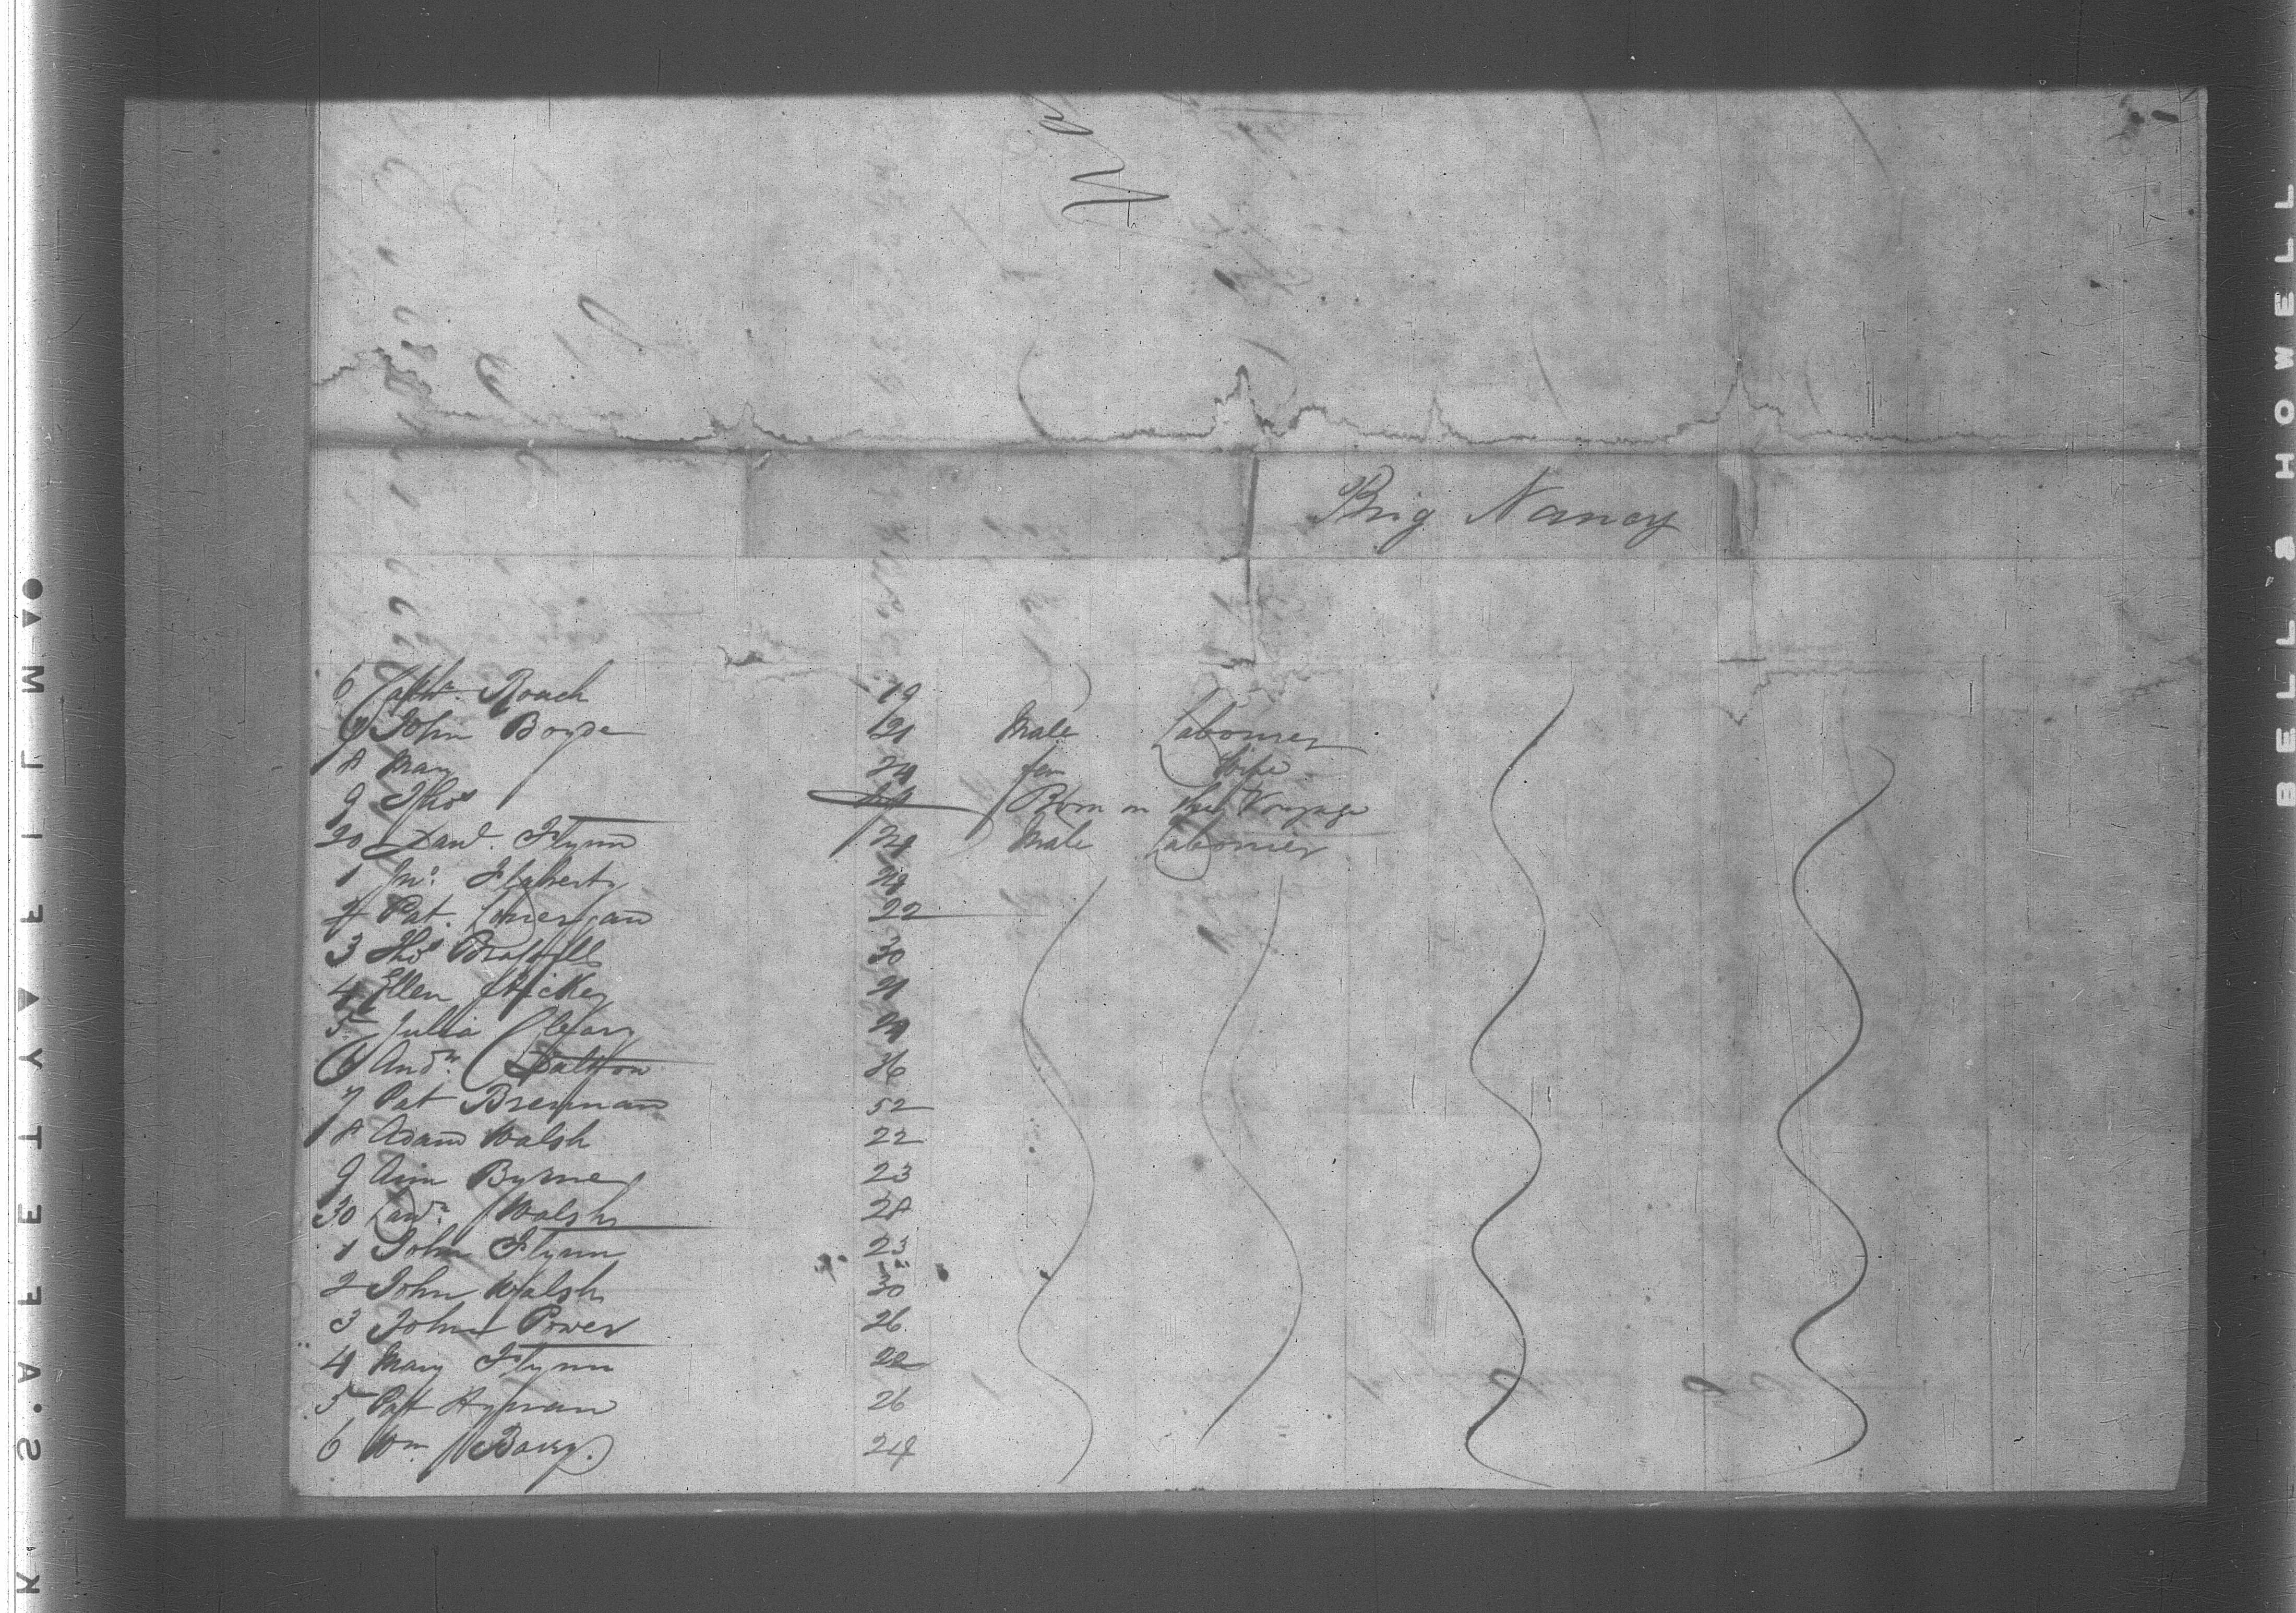 Brig Nancy
6 Cathn. Roach 19
7 John Boyse 21 Male Labourer
8 Mary 24 fem Wife
9 Thos Born on the Voyage
20 Dand. Flynn 24 Male Labourer
1 Jno. Flaherty 28
2 Pat. Lonergan 22
3 Thos 30
4 Ellen Hickey 21
5 Julia Cleary
6 Andw. Daltton 36
7 Pat Brennan 52
8 Adam Walsh 22
9 Ann Byrne 23
30 Lawr. Walsh 28
1 John Flynn 23
2 John Walsh 30
3 John Power 26
4 Mary Flynn 22
5 Pat Hynan 26
6 Wm. Barry. 24
K. S. A F E T Y ▲ F I L M ▲●
BELL & HOWELL